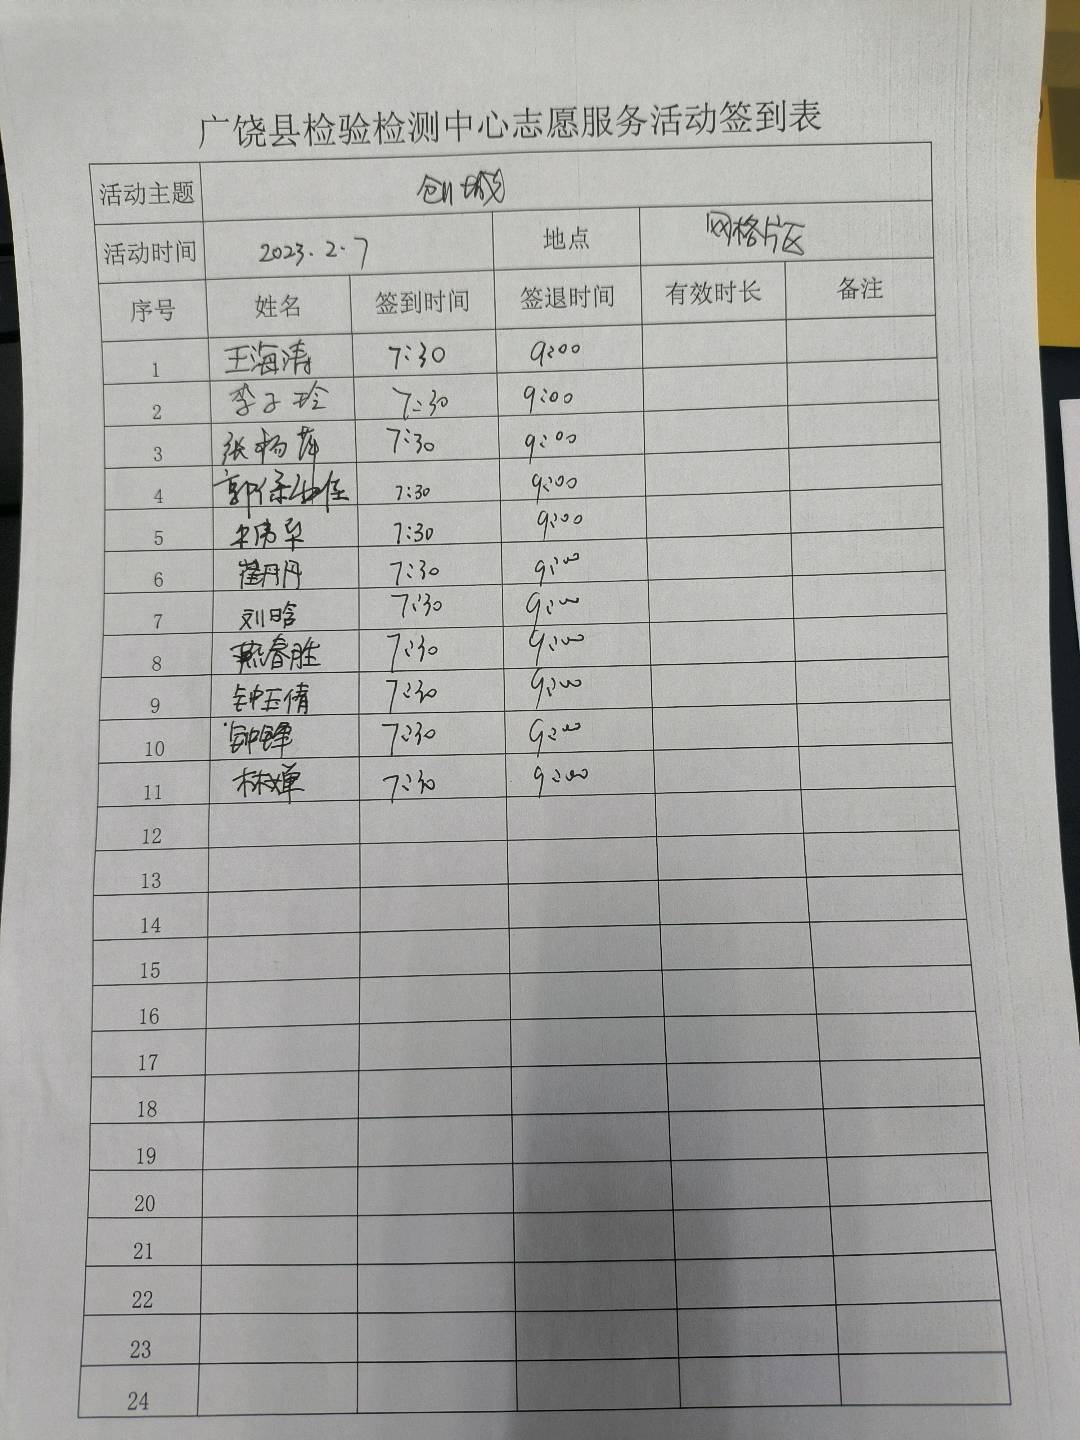 广饶县检验检测中心志愿服务活动签到表
活动主题 创城
活动时间 2023.2.7 地点 网格片区
序号 姓名 签到时间 签退时间 有效时长 备注
1 王海涛 7:30 9:00
2 李子玲 7:30 9:00
3 张杨萍 7:30 9:00
4 7:30 9:00
5 宋伟华 7:30 9:00
6 崔丹丹 7:30 9:00
7 刘晗 7:30 9:00
8 燕春胜 7:30 9:00
9 钟玉倩 7:30 9:00
10 钟锋 7:30 9:00
11 林婵 7:30 9:00
12
13
14
15
16
17
18
19
20
21
22
23
24